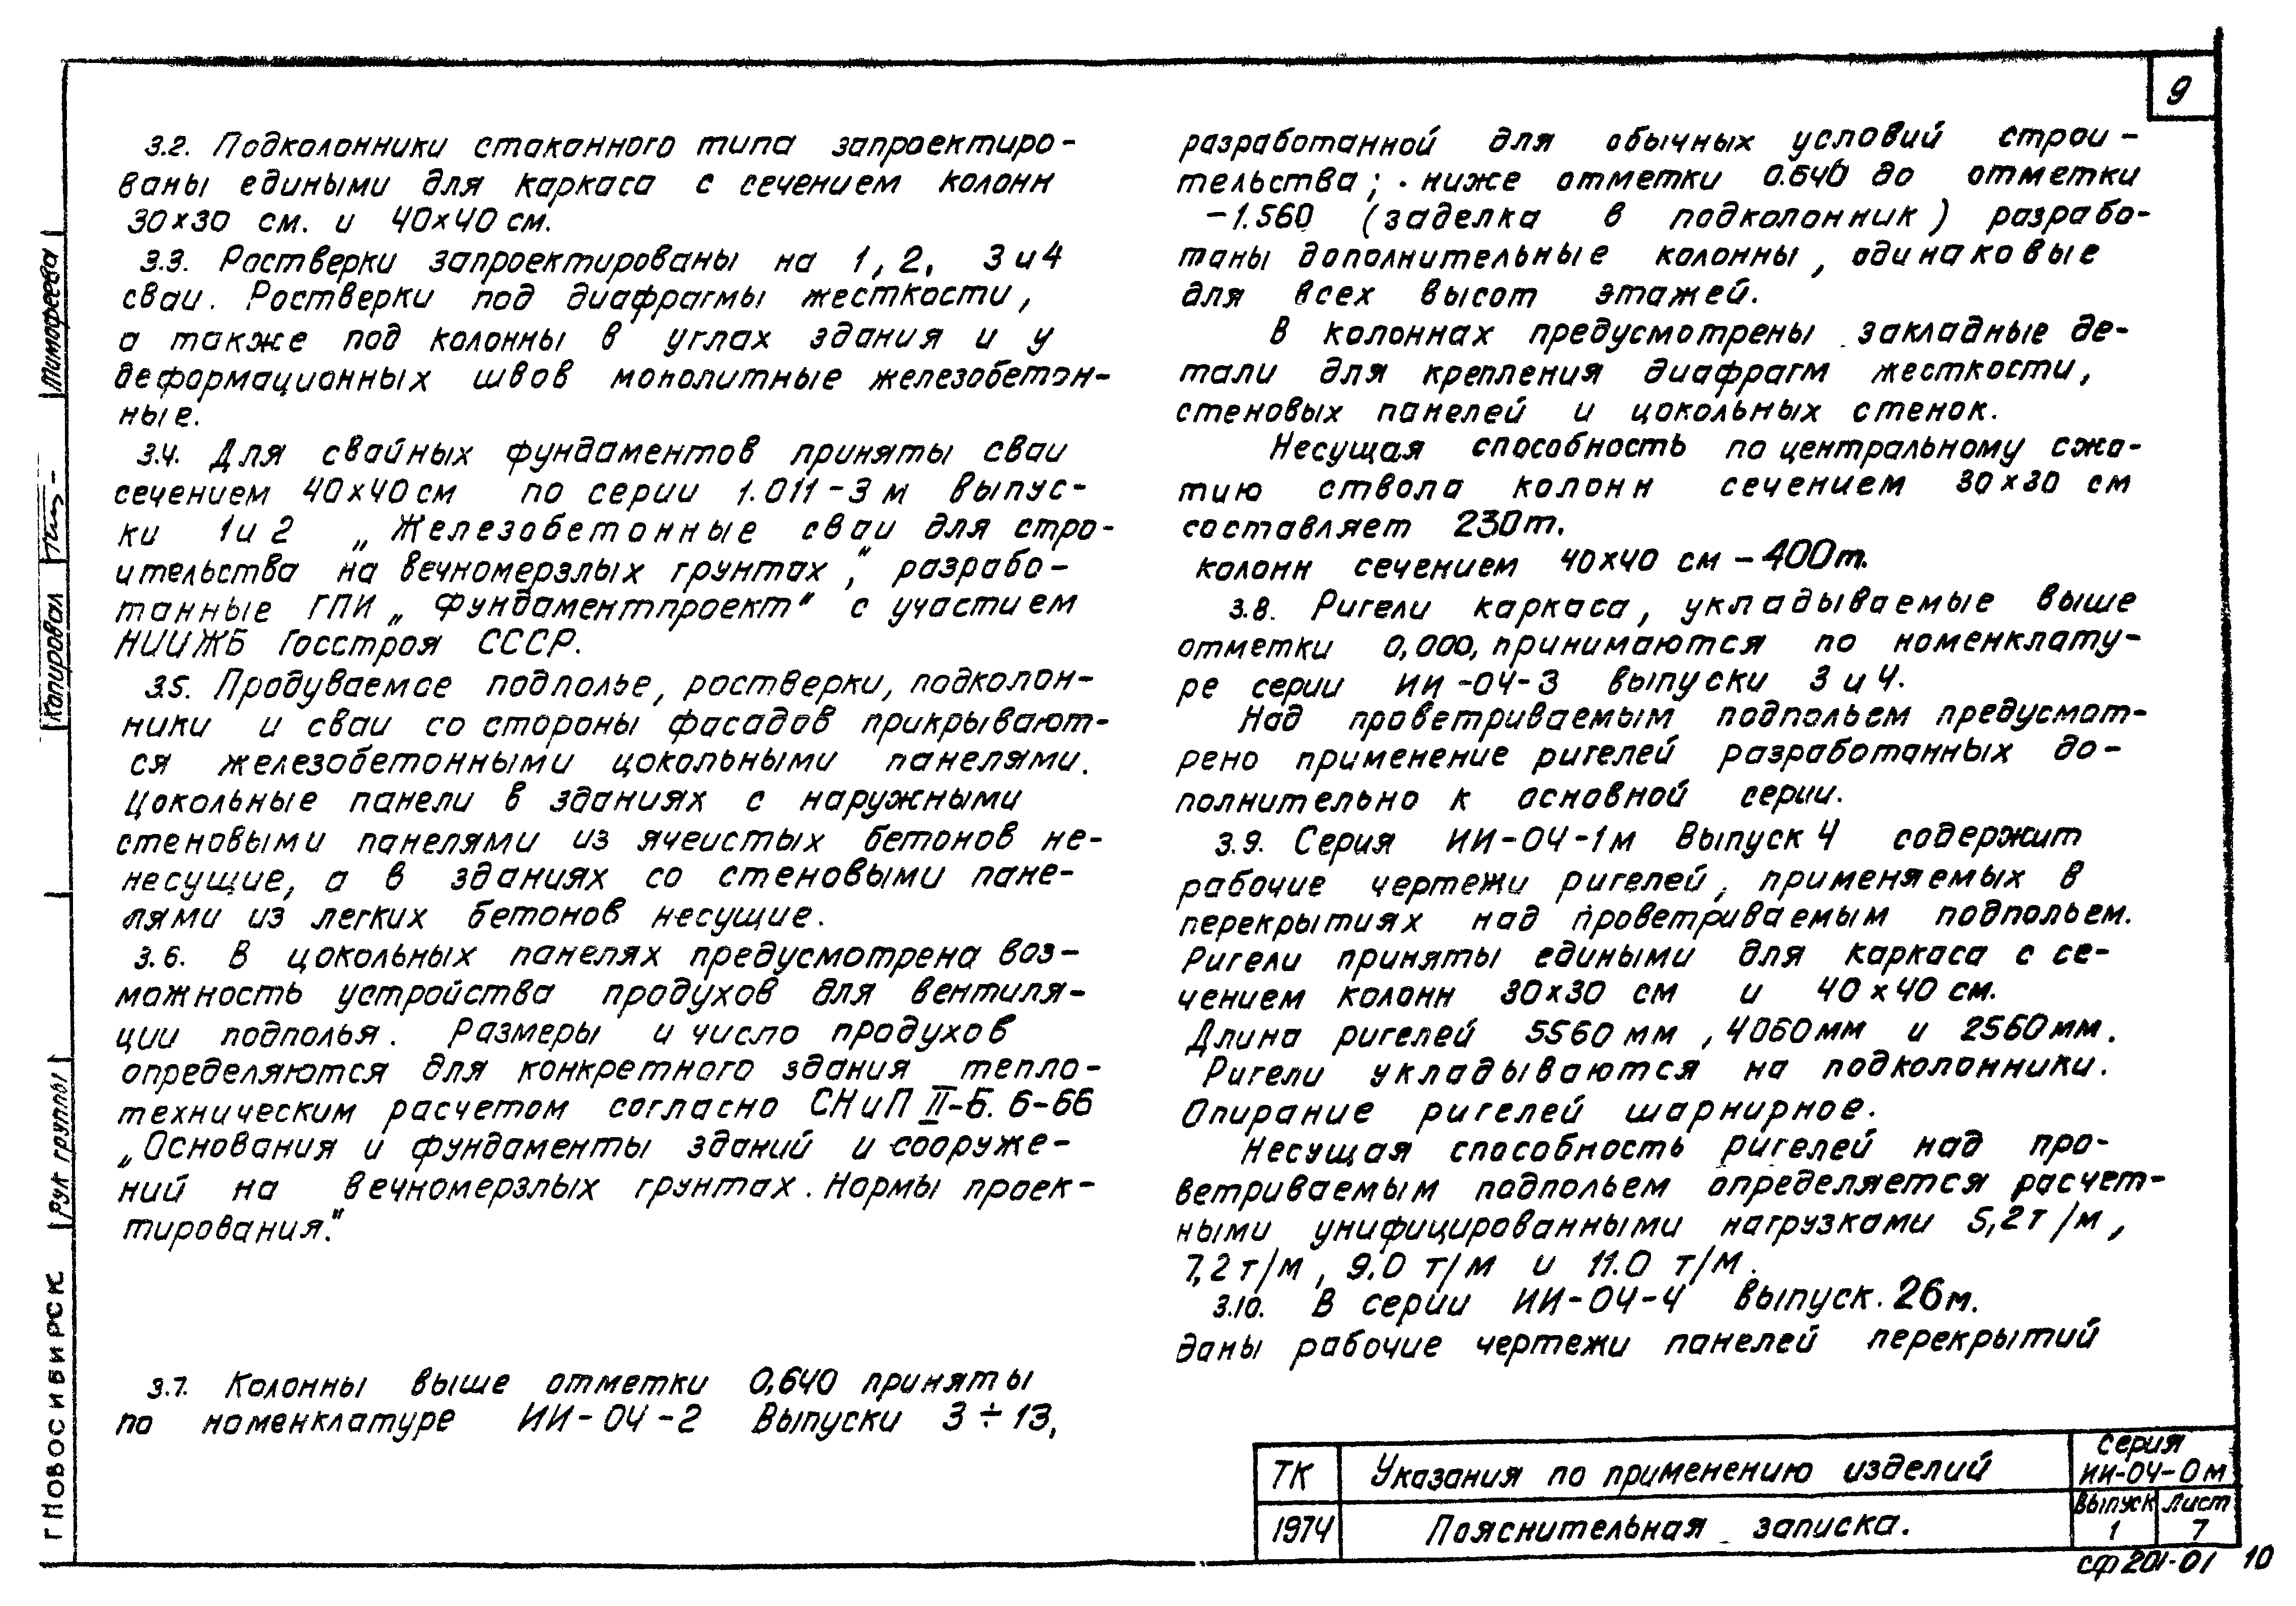 9
3.2. Подколонники стаканного типа запроектиро-
ваны едиными для каркаса с сечением колонн
30×30 см. и 40×40 см.
3.3. Ростверки запроектированы на 1, 2, 3 и 4
сваи. Ростверки под диафрагмы жесткости,
а также под колонны в углах здания и у
деформационных швов монолитные железобетон-
ные.
3.4. Для свайных фундаментов приняты сваи
сечением 40×40 см по серии 1.011-3м выпус-
ки 1 и 2 „Железобетонные сваи для стро-
ительства на вечномерзлых грунтах", разрабо-
танные ГПИ „Фундаментпроект" с участием
НИИЖБ Госстроя СССР.
3.5. Продуваемое подполье, ростверки, подколон-
ники и сваи со стороны фасадов прикрывают-
ся железобетонными цокольными панелями.
Цокольные панели в зданиях с наружными
стеновыми панелями из ячеистых бетонов не-
несущие, а в зданиях со стеновыми пане-
лями из легких бетонов несущие.
3.6. В цокольных панелях предусмотрена воз-
можность устройства продухов для вентиля-
ции подполья. Размеры и число продухов
определяются для конкретного здания тепло-
техническим расчетом согласно СНиП II-Б. 6-66
„Основания и фундаменты зданий и сооруже-
ний на вечномерзлых грунтах. Нормы проек-
тирования."
3.7. Колонны выше отметки 0,640 приняты
по номенклатуре ИИ-04-2 Выпуски 3÷13,
разработанной для обычных условий строи-
тельства; ниже отметки 0.640 до отметки
-1.560 (заделка в подколонник) разрабо-
таны дополнительные колонны, одинаковые
для всех высот этажей.
В колоннах предусмотрены закладные де-
тали для крепления диафрагм жесткости,
стеновых панелей и цокольных стенок.
Несущая способность по центральному сжа-
тию ствола колонн сечением 30×30 см
составляет 230т.
колонн сечением 40×40 см - 400т.
3.8. Ригели каркаса, укладываемые выше
отметки 0,000, принимаются по номенклату-
ре серии ИИ-04-3 выпуски 3 и 4.
Над проветриваемым подпольем предусмот-
рено применение ригелей разработанных до-
полнительно к основной серии.
3.9. Серия ИИ-04-1м Выпуск 4 содержит
рабочие чертежи ригелей, применяемых в
перекрытиях над проветриваемым подпольем.
Ригели приняты едиными для каркаса с се-
чением колонн 30×30 см и 40×40 см.
Длина ригелей 5560 мм, 4060 мм и 2560 мм.
Ригели укладываются на подколонники.
Опирание ригелей шарнирное.
Несущая способность ригелей над про-
ветриваемым подпольем определяется расчет-
ными унифицированными нагрузками 5,2т/м,
7,2т/м, 9.0 т/м и 11.0 т/м.
3.10. В серии ИИ-04-4 выпуск. 26м.
даны рабочие чертежи панелей перекрытий
ТК Указания по применению изделий
серия
ИИ-04-0м
1974 Пояснительная записка.
Выпуск Лист
1 7
сф 201-01 10
г Новосибирск
Рук группы
Копировал
Тимофеева